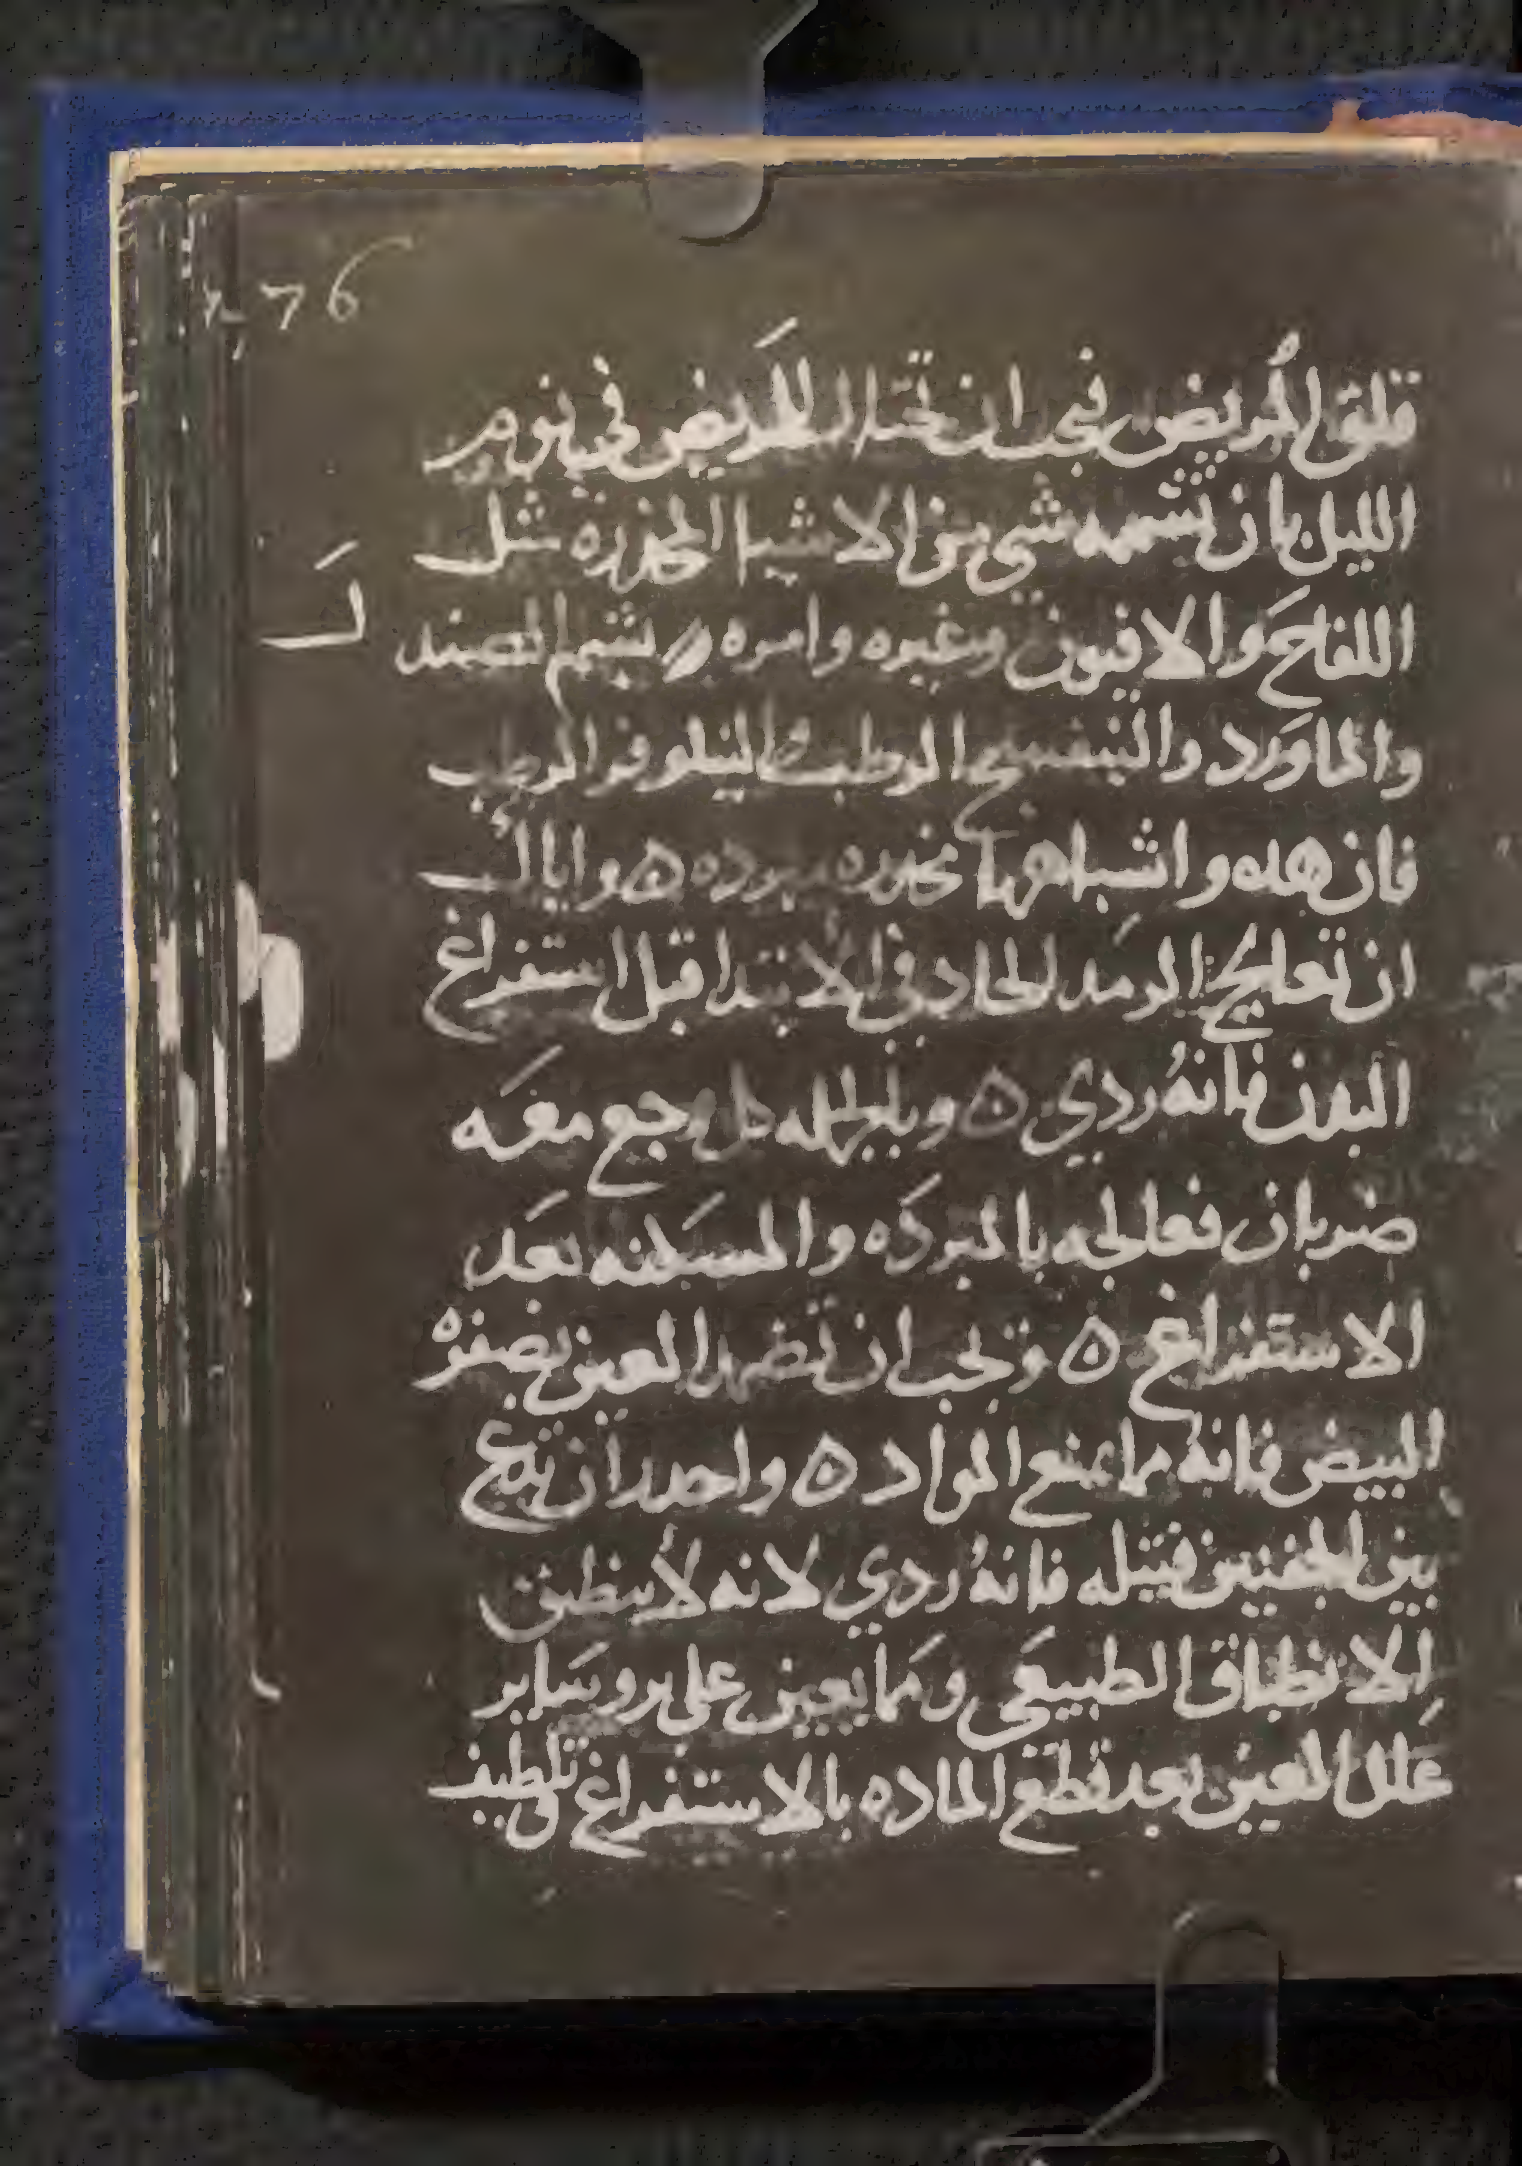 76
قلق المريض فيجب ان تحتال للمريض في نوم
الليل بان تشممه شي من الاشيا المخدره مثل
اللفاح والافيون وغيره وامره بشم الصند
ل
والماورد والبنفسج الرطب والنيلوفر الرطب
فان هده واشباهها مخدره مبرده ه واياك
ان تعالج الرمد الحاد في الابتدا قبل استفراغ
البدن فانهُ ردي ه وبالجمله كل وجع معَه
ضربان فعالجه بالمبردَه والمسَكنه بعَد
الاستفراغ ه ويجب ان تضمد العين بصفرة
البيض فانهُ مما يمنع المواد ه واحدر ان تدع
بين الجفنين فتيله فانهُ ردي لانه لا ينطبق
الانطباق الطبيعَي ومَما يعين على برو سَاير
عَلل العين بعد قطع الماده بالاستفراغ تلطيف